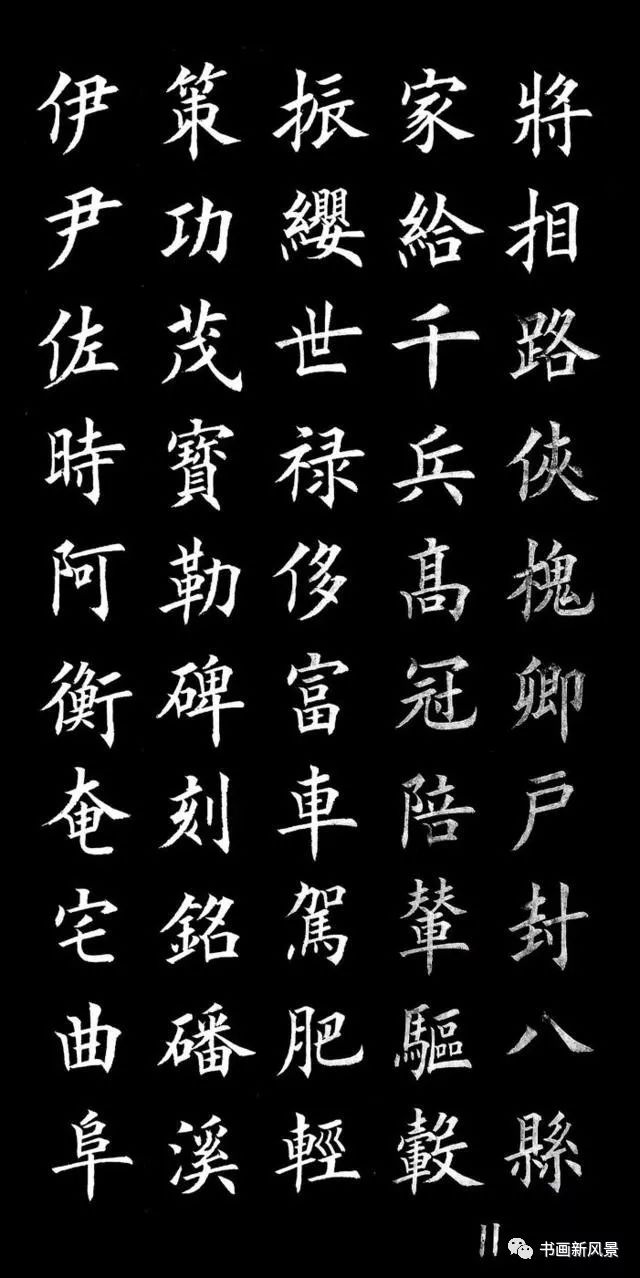 將相路俠槐卿戶封八縣
家給千兵髙冠陪輦驅轂
振纓世禄侈富車駕肥輕
策功茂寶勒碑刻銘磻溪
伊尹佐時阿衡奄宅曲阜
11
书画新风景